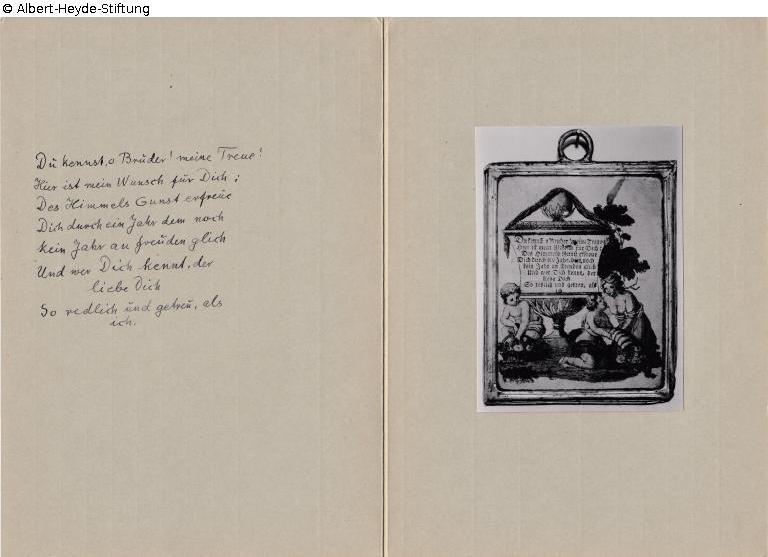 © Albert-Heyde-Stiftung
Du kennst, o Bruder! meine Treue!
Hier ist mein Wunsch für Dich:
Des Himmels Gunst erfreue
Dich durch ein Jahr dem noch
kein Jahr an freuden glich
Und wer Dich kennt, der
liebe Dich
So redlich und getreu, als
ich.
Du kennst o Bruder meine Treue
Hier ist mein Wunsch für Dich:
Des Himmels Gunst erfreue
Dich durch ein Jahr, dem noch
kein Jahr an Freuden glich
Und wer Dich kennt, der
liebe Dich
So redlich und getreu, als
ich